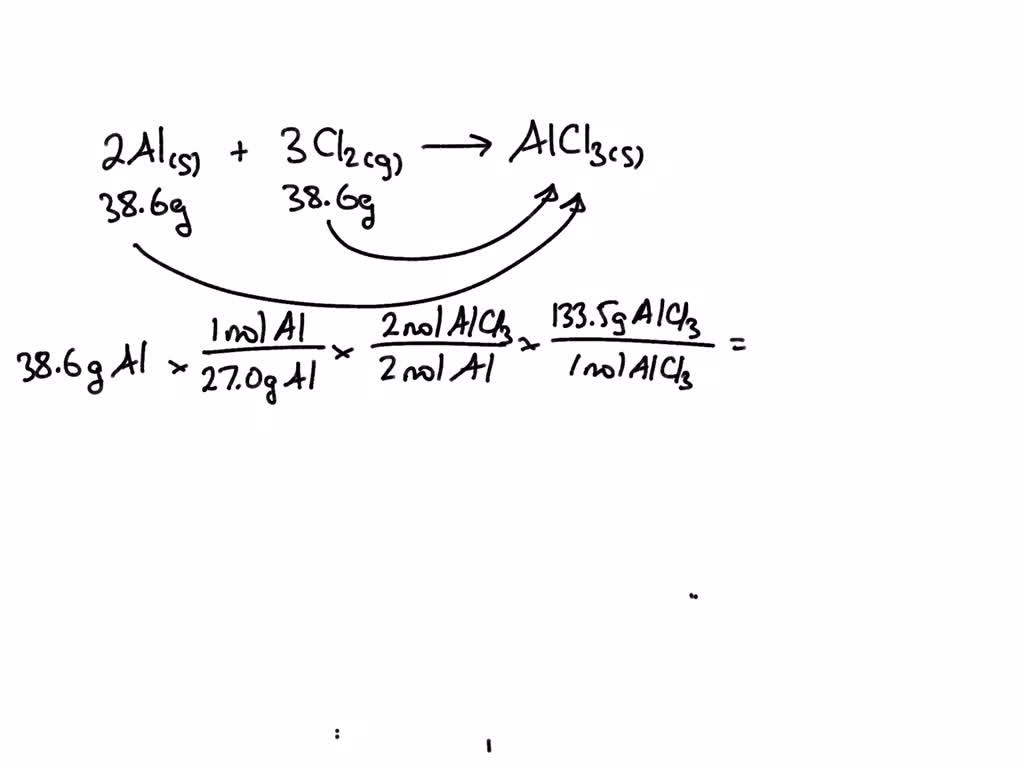 2Al(s) + 3Cl2(g) → AlCl3(s)
38.6g 38.6g
38.6g Al × 1mol Al / 27.0g Al × 2mol AlCl3 / 2mol Al × 133.5g AlCl3 / 1mol AlCl3 =